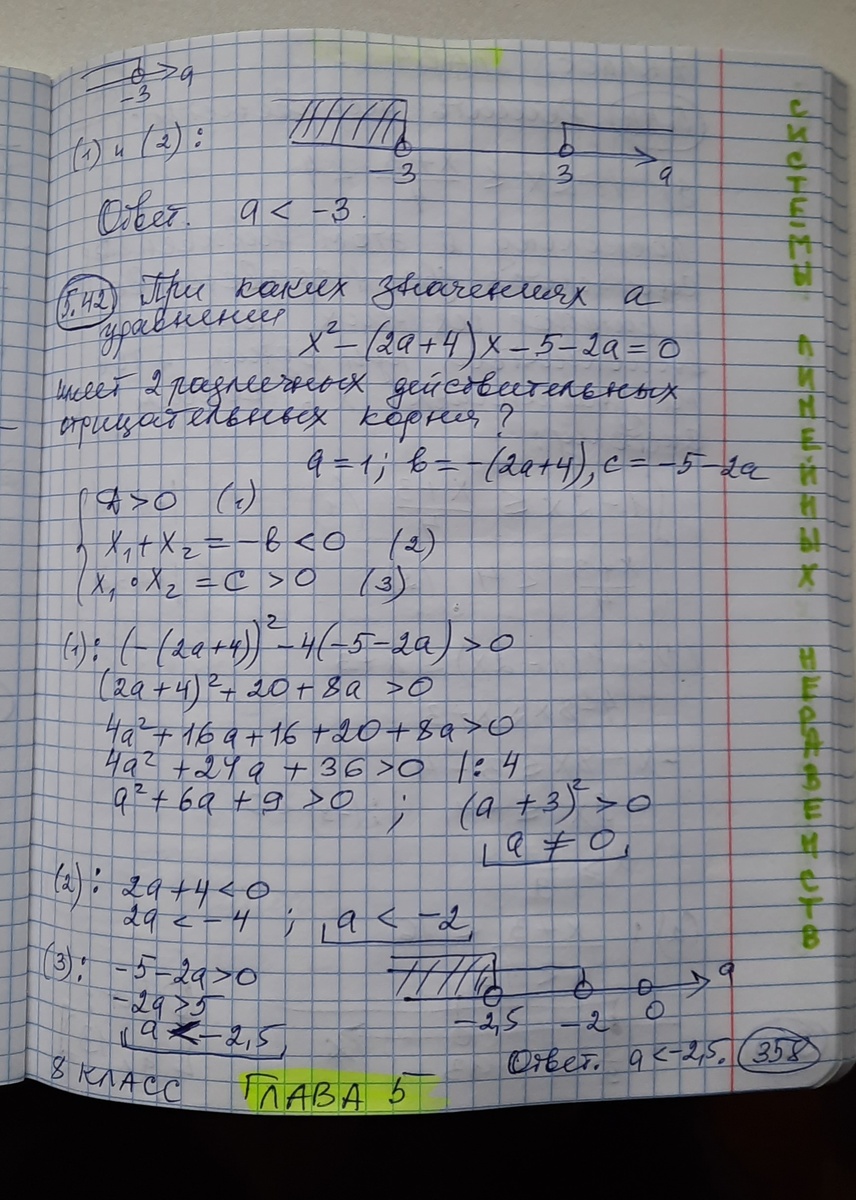 -3 a
(1) и (2): -3 3 a
Ответ. a < -3.
5.42 При каких значениях a
уравнения
x² - (2a+4)x - 5 - 2a = 0
имеет 2 различных действительных
отрицательных корня?
a = 1; в = -(2a+4), c = -5-2a
D > 0 (1)
x₁ + x₂ = -в < 0 (2)
x₁ • x₂ = c > 0 (3)
(1): (-(2a+4))² - 4(-5-2a) > 0
(2a+4)² + 20 + 8a > 0
4a² + 16a + 16 + 20 + 8a > 0
4a² + 24a + 36 > 0 |: 4
a² + 6a + 9 > 0 ; (a + 3)² > 0
a ≠ 0
(2): 2a + 4 < 0
2a < -4 ; a < -2
(3): -5 - 2a > 0
-2a > 5
a < -2,5
-2,5 -2 0 a
Ответ. a < -2,5. 358
8 КЛАСС ГЛАВА 5
СИСТЕМЫ ЛИНЕЙНЫХ НЕРАВЕНСТВ